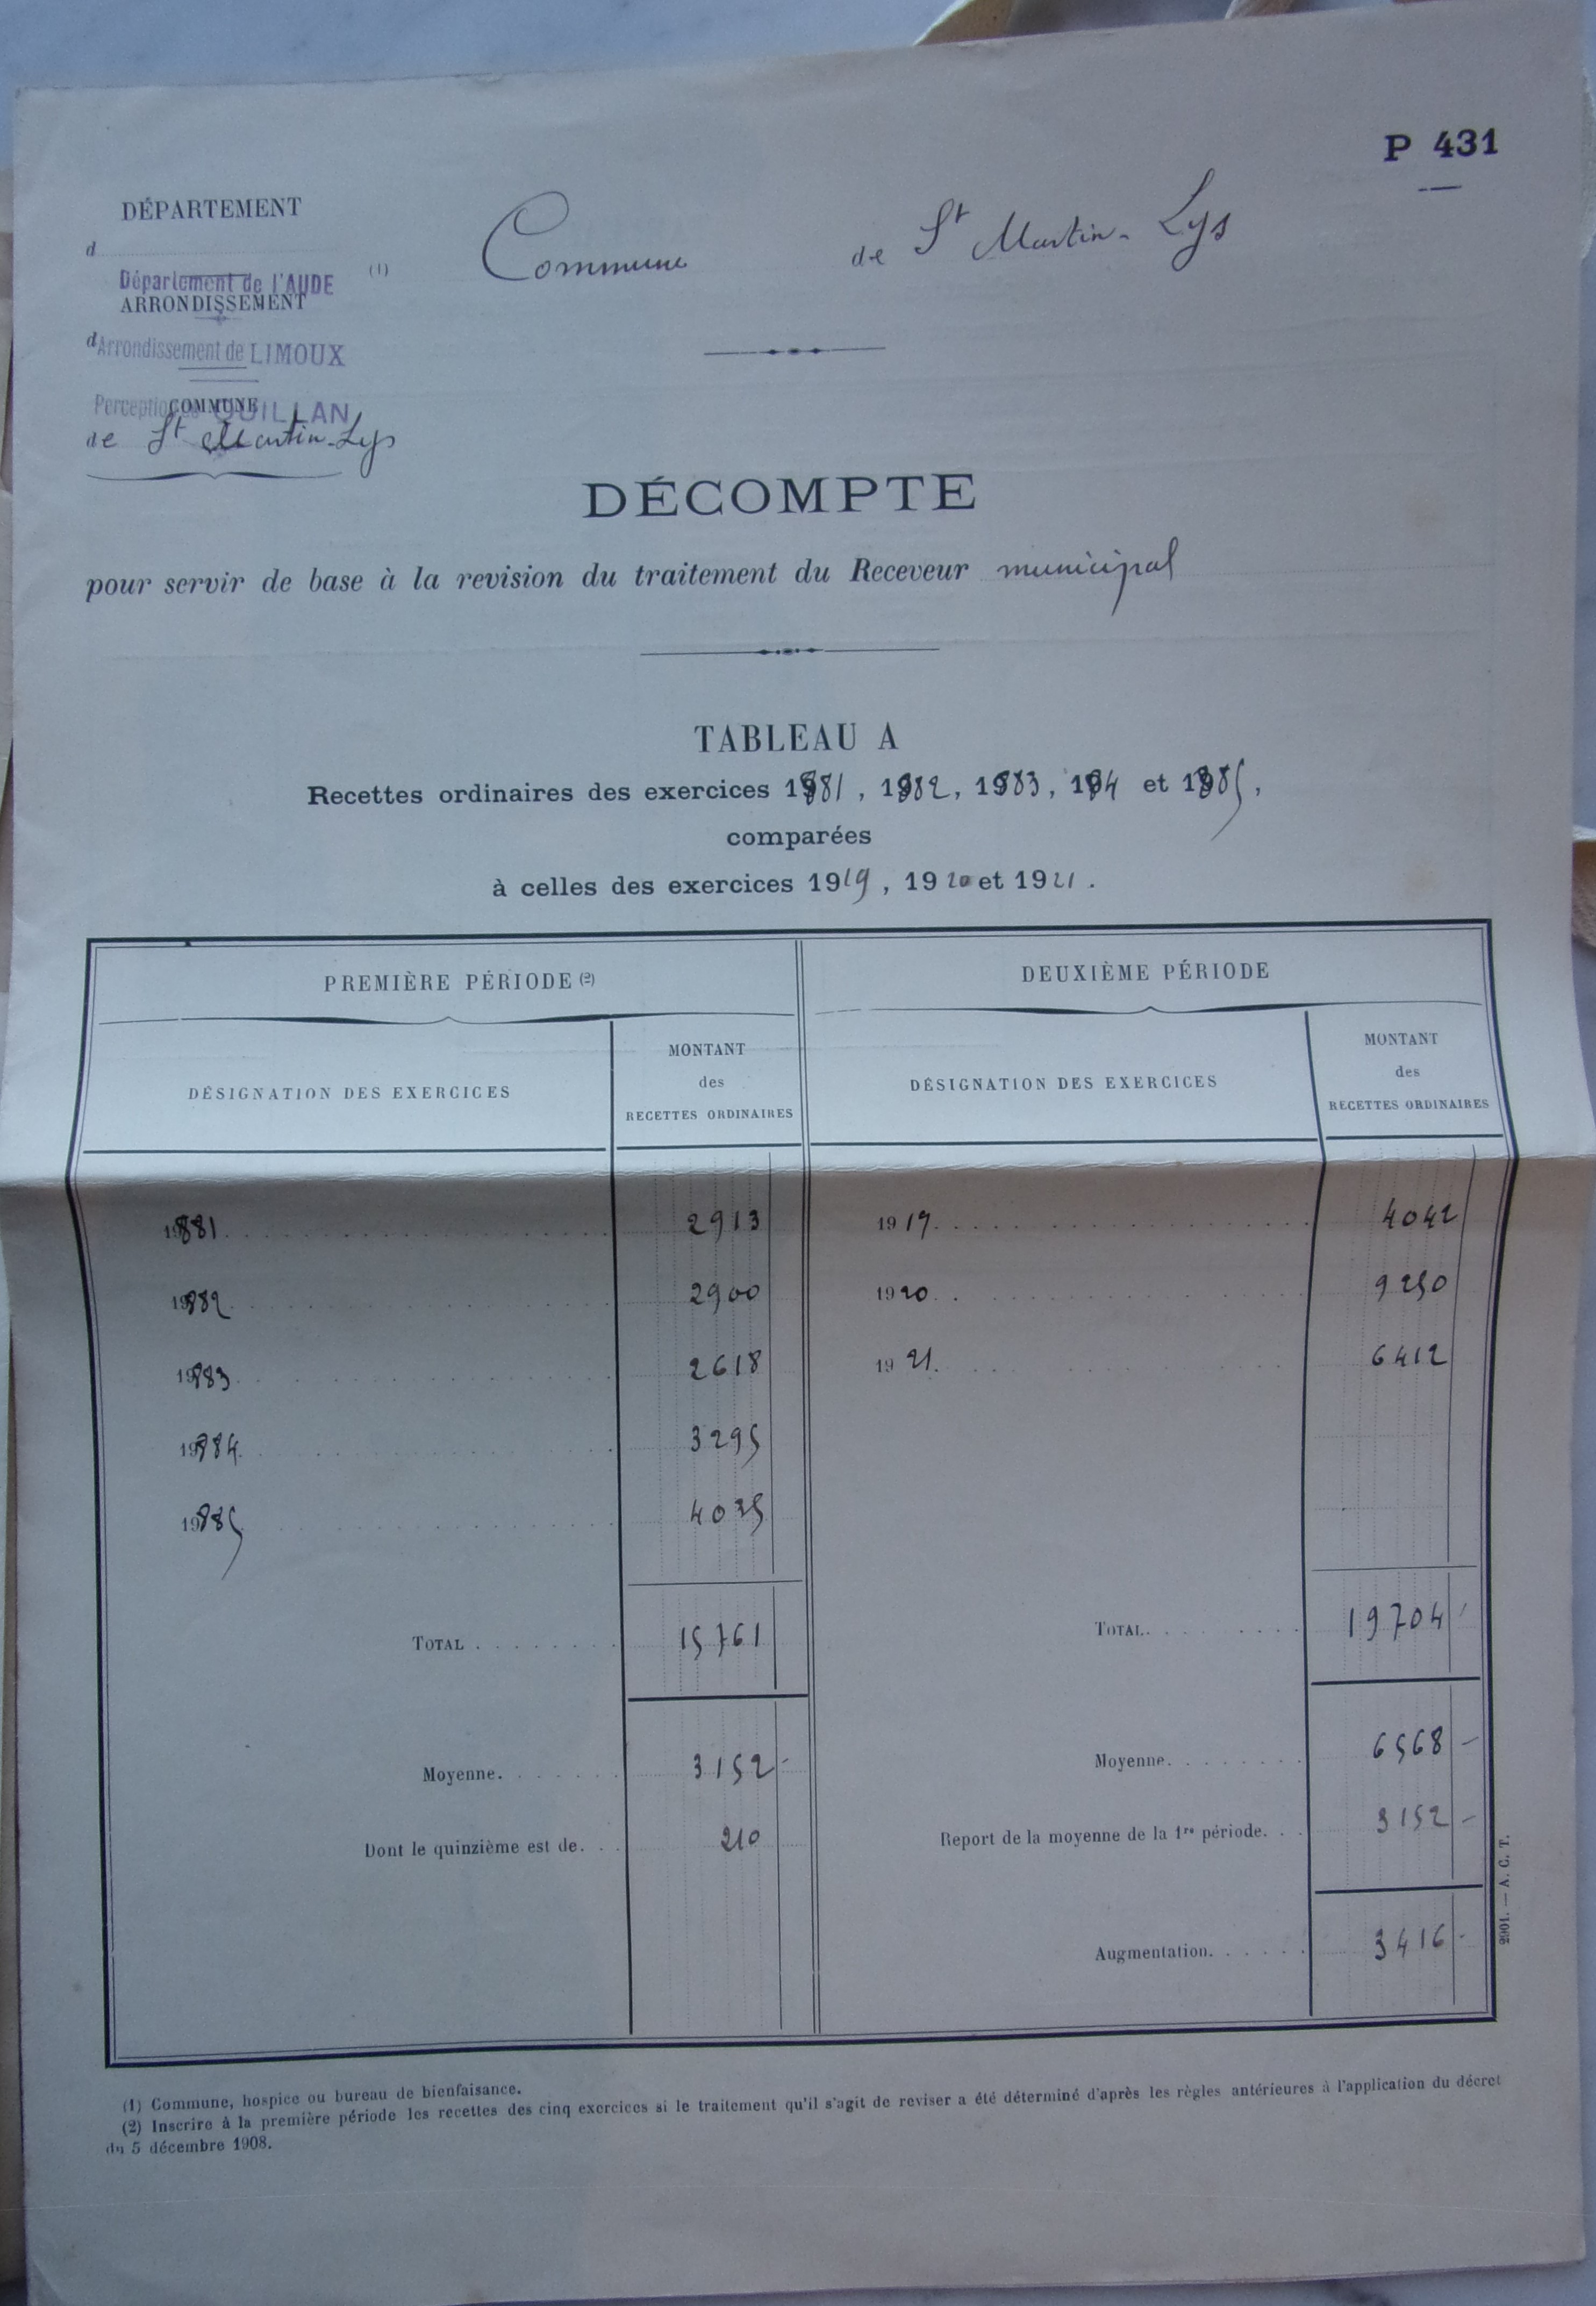 P 431
DÉPARTEMENT
d
Département de l'AUDE
ARRONDISSEMENT
d Arrondissement de LIMOUX
Perception de QUILLAN
COMMUNE
de St Martin-Lys
(1) Commune de St Martin-Lys
DÉCOMPTE
pour servir de base à la revision du traitement du Receveur municipal
TABLEAU A
Recettes ordinaires des exercices 1881, 1882, 1883, 184 et 1885,
comparées
à celles des exercices 1919, 1920 et 1921.
PREMIÈRE PÉRIODE (2) DEUXIÈME PÉRIODE
DÉSIGNATION DES EXERCICES MONTANT des RECETTES ORDINAIRES DÉSIGNATION DES EXERCICES MONTANT des RECETTES ORDINAIRES
1881 2913 1919 4042
1882 2900 1920 9250
1883 2618 1921 6412
1884 3295
1885 4035
TOTAL 15761 TOTAL 19704
Moyenne 3152 - Moyenne 6568 -
Dont le quinzième est de 210 Report de la moyenne de la 1re période 3152 -
Augmentation 3416 -
2901. — A. C. T.
(1) Commune, hospice ou bureau de bienfaisance.
(2) Inscrire à la première période les recettes des cinq exercices si le traitement qu'il s'agit de reviser a été déterminé d'après les règles antérieures à l'application du décret
du 5 décembre 1908.